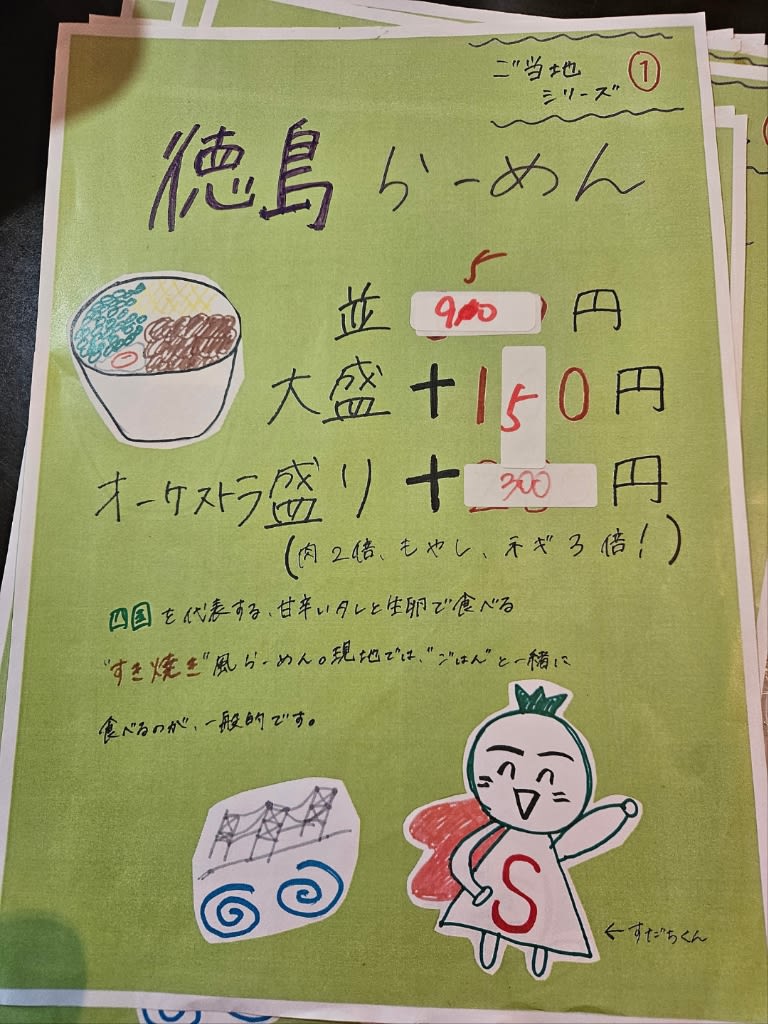 ご当地 ①
シリーズ
徳島らーめん
5
並 900円
大盛 +150円
オーケストラ盛り +300円
(肉2倍、もやし、ネギ3倍!)
四国を代表する、甘辛いタレと生卵で食べる
"すき焼き"風らーめん。現地では、"ごはん"と一緒に
食べるのが、一般的です。
S
←すだちくん